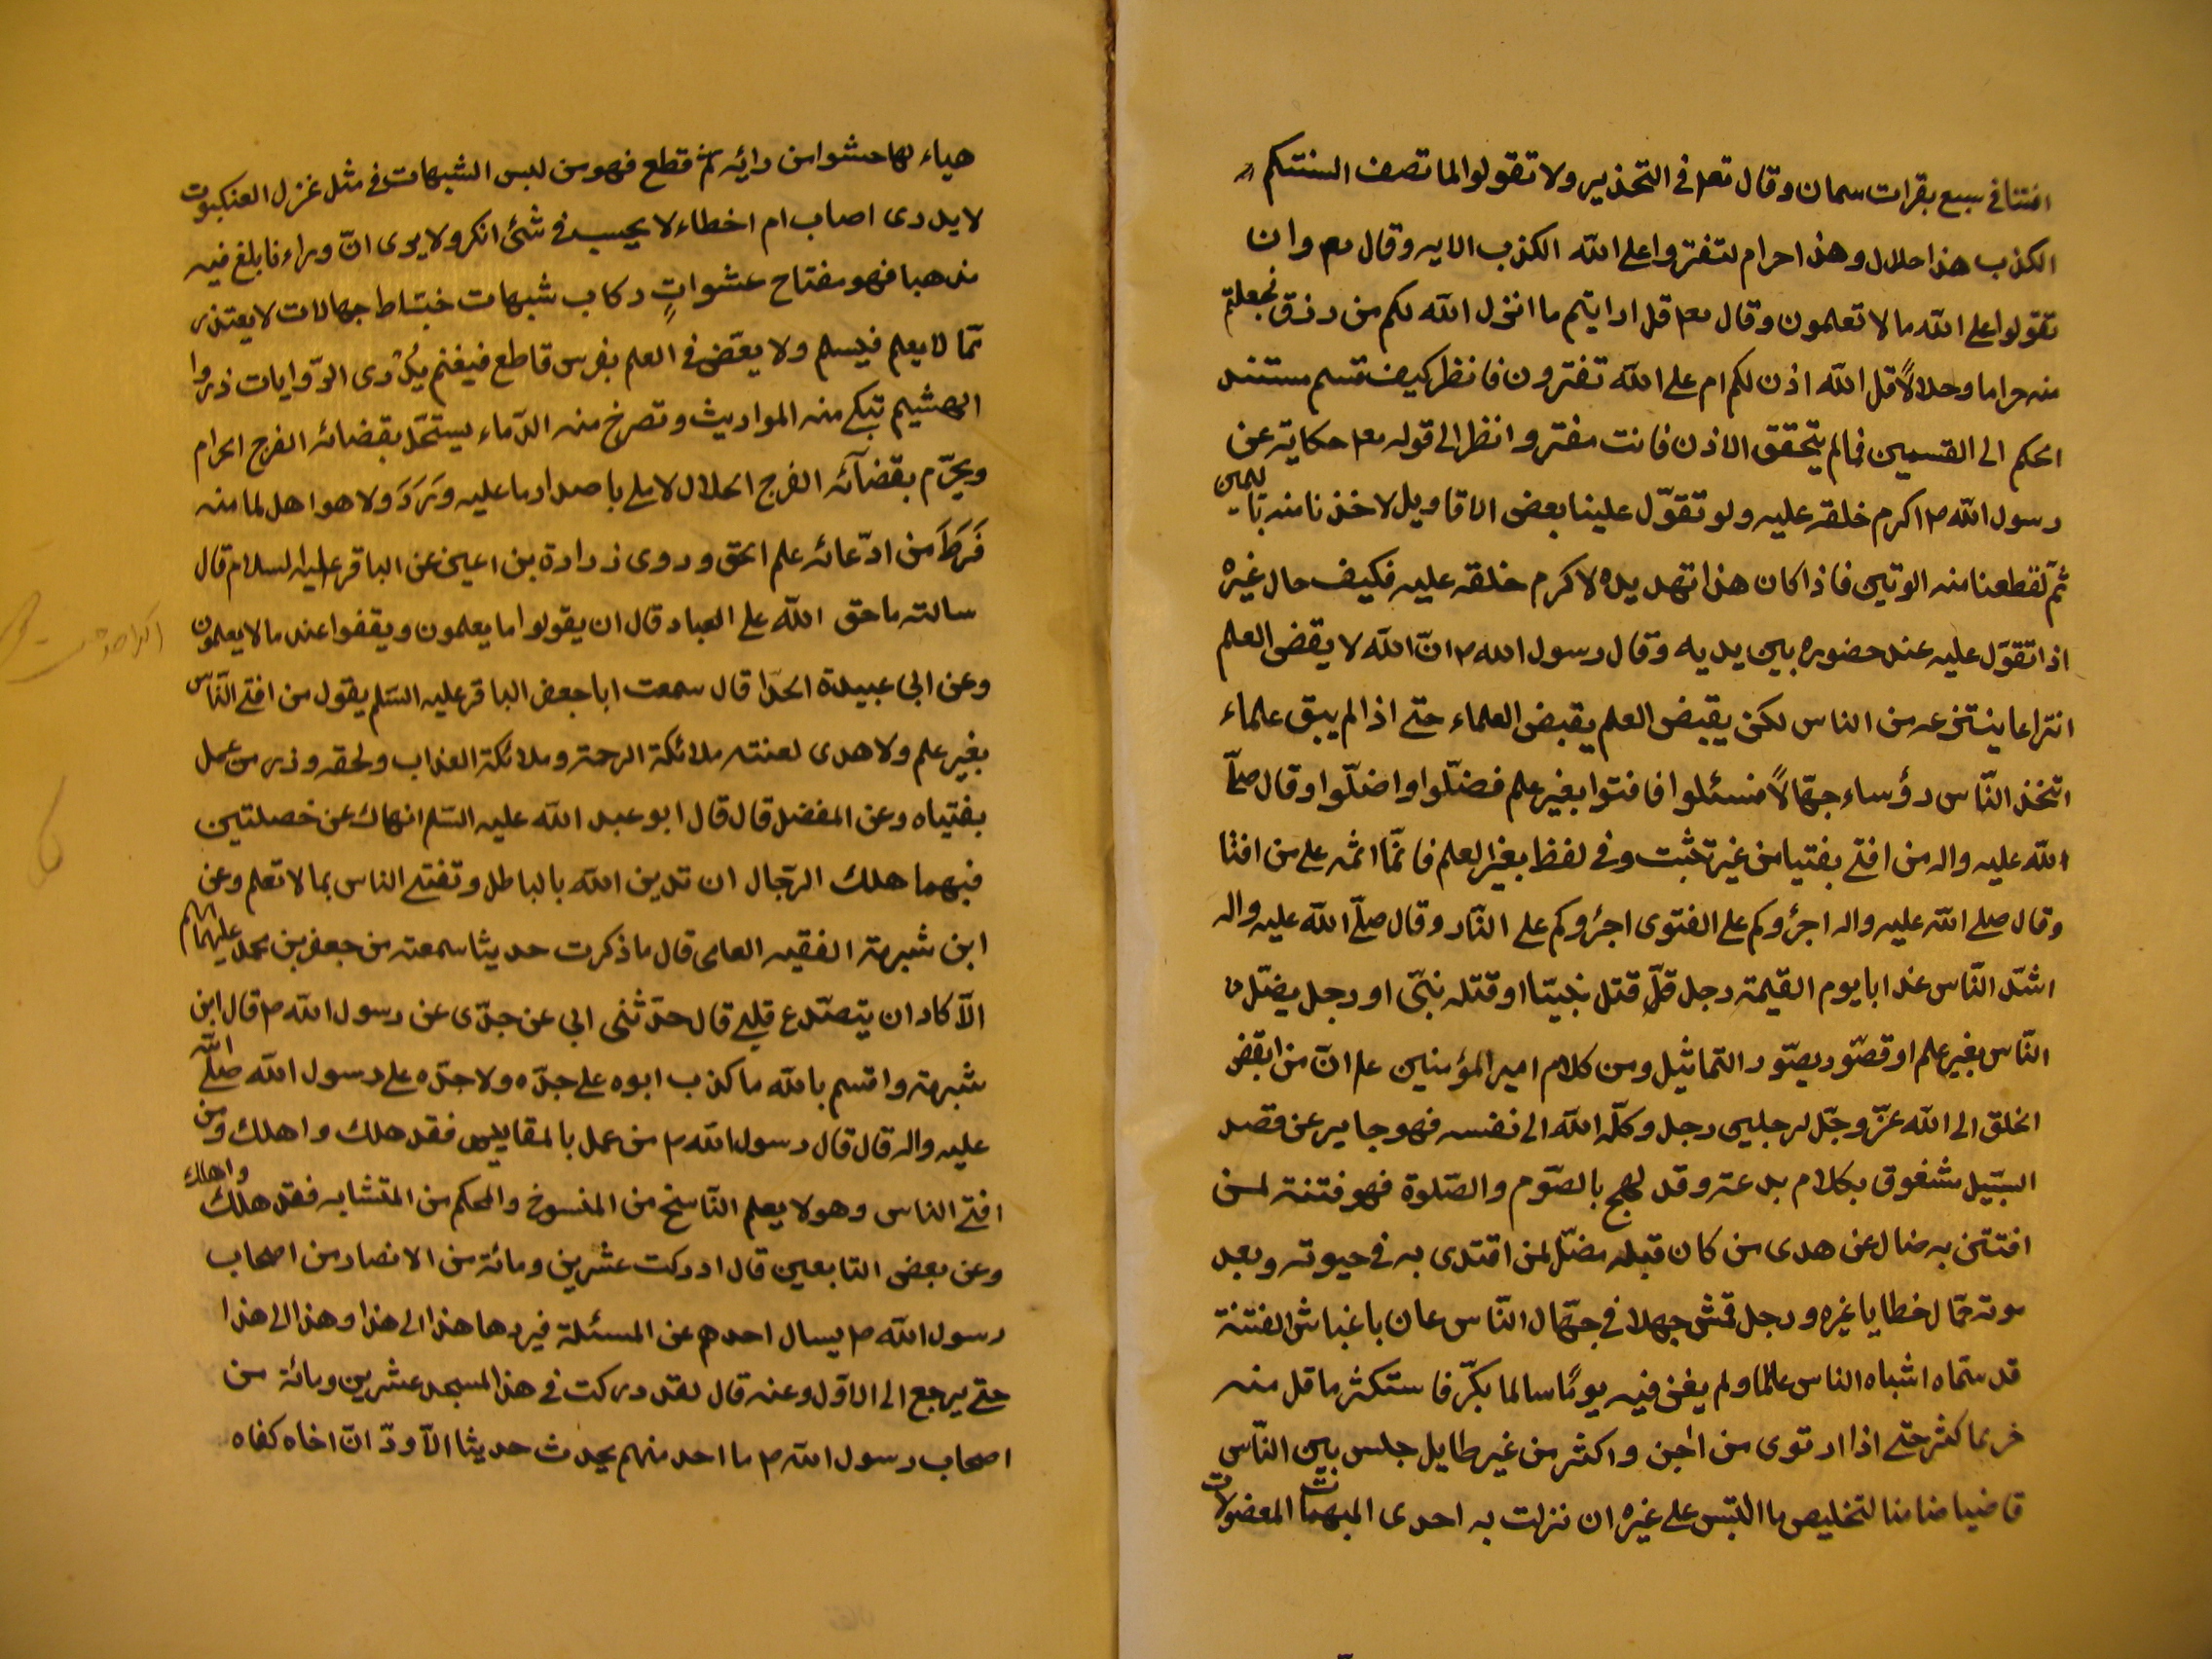 افتنا في سبع بقرات سمان وقال تعم في التحذير ولا تقولوا لما تصف السنتكم
الكذب هذا حلال وهذا حرام لتفتروا على الله الكذب الايه وقال تعم وان
تقولوا على الله ما لا تعلمون وقال تعم قل ارايتم ما انزل الله لكم من رزق فجعلتم
منه حراما وحلالاً قل الله اذن لكم ام على الله تفترون فانظر كيف قسم مستند
الحكم الى القسمين فما لم يتحقق الاذن فانت مفتر وانظر الى قوله تعم حكاية عن
رسول الله ص اكرم خلقه عليه ولو تقوّل علينا بعض الاقاويل لاخذنا منه باليمين
ثمّ لقطعنا منه الوتين فاذا كان هذا تهديده لاكرم خلقه عليه فكيف حال غيره
اذا تقوّل عليه عند حضوره بين يديه وقال رسول الله ص انّ الله لا يقضى العلم
انتزاعا ينتزعه من الناس لكن يقبض العلم يقبض العلماء حتى اذا لم يبق علماء
اتخذ النّاس رؤساء جهّالاً فسئلوا فافتوا بغير علم فضلّوا واضلّوا وقال صلّى
الله عليه واله من افتى بفتيا من غير تثبت وفي لفظ بغير العلم فانّما اثمه على من افتا
وقال صلى الله عليه واله اجرؤكم على الفتوى اجرؤكم على النّار وقال صلّى الله عليه واله
اشدّ النّاس عذابا يوم القيمة رجل قتل نبيّا او قتله نبّى او رجل يضلّ
النّاس بغير علم او قصّور يصّور التماثيل ومن كلام امير المؤمنين ع انّ من ابغض
الخلق الى الله عزّ وجّل لرجلين رجل وكلّه الله الى نفسه فهو جاير عن قصد
السّبيل مشغوق بكلام بدعة وقد لهج بالصّوم والصّلوة فهو فتنة لمن
افتتن به ضال عن هدى من كان قبله مضّل لمن اقتدى به في حيوته وبعد
موته حمّال خطايا غيره ورجل قمش جهلا في جهّال النّاس عان باغباش الفتنة
قد سمّاه اشباه الناس عالما ولم يغن فيه يومًا سالما بكّر فاستكثر ما قل منه
خر مما كثر حتى اذا ارتوى من اجن واكثر من غير طايل جلس بين النّاس
قاضيا ضامنا لتخليص ما التبس على غيره ان نزلت به احدى المبهمات المعضولات
هياء لها حشوا من رائيه ثمّ قطع فهو من لبس الشبهات في مثل غزل العنكبوت
لا يدرى اصاب ام اخطاء لا يحسب في شئ انكر ولا يرى انّ وراء ما بلغ فيه
مذهبا فهو مفتاح عشواتٍ ركاب شبهات خبّاط جهالات لا يعتذر
ممّا لا يعلم فيسلم ولا يعّض في العلم بضرس قاطع فيغنم يذرى الرّوايات ذروا
الهشيم تبكى منه المواريث وتصرخ منه الدّماء يستحّل بقضائه الفرج الحرام
ويحرّم بقضآئه الفرج الحلال لا ملى باصدار ما عليه وَرَدَ ولا هو اهل لما منه
فَرَطَ من ادّعائه علم الحق وروى زرارة بن اعين عن الباقر عليه السلام قال
سالته ما حق الله على العباد قال ان يقولوا ما يعلمون ويقفوا عند ما لا يعلمون
وعن ابي عبيدة الحذّا قال سمعت ابا جعفر الباقر عليه السّلم يقول من افتى النّاس
بغير علم ولا هدى لعنته ملائكة الرحمة وملائكة العذاب ولحقه وزر من عمل
بفتياه وعن المفضل قال قال ابو عبد الله عليه السّلم انهاك عن خصلتين
فيهما هلك الرّجال ان تدين الله بالباطل وتفتى الناس بما لا تعلم وعن
ابن شبرمة الفقيه العامى قال ما ذكرت حديثا سمعته من جعفر بن محمد عليهما السلم
الّا كاد ان يتصدّع قلبى قال حدّثنى ابي عن جدّى عن رسول الله ص قال ابن
شبرمة واقسم بالله ما كذب ابوه على جدّه ولا جدّه على رسول الله صلّى الله
عليه واله قال قال رسول الله ص من عمل بالمقاييس فقد هلك واهلك ومن
افتى الناس وهو لا يعلم النّاسخ من المنسوخ والمحكم من المتشابه فقد هلك واهلك
وعن بعض التابعين قال ادركت عشرين ومائة من الانصار من اصحاب
رسول الله ص يسال احدهم عن المسئلة فيردها هذا الى هذا وهذا الى هذا
حتى يرجع الى الاوّل وعنه قال لقد دركت في هذا المسجد عشرين ومائة من
اصحاب رسول الله ص ما احد منهم يحدث حديثا الّا ودّ انّ اخاه كفاه